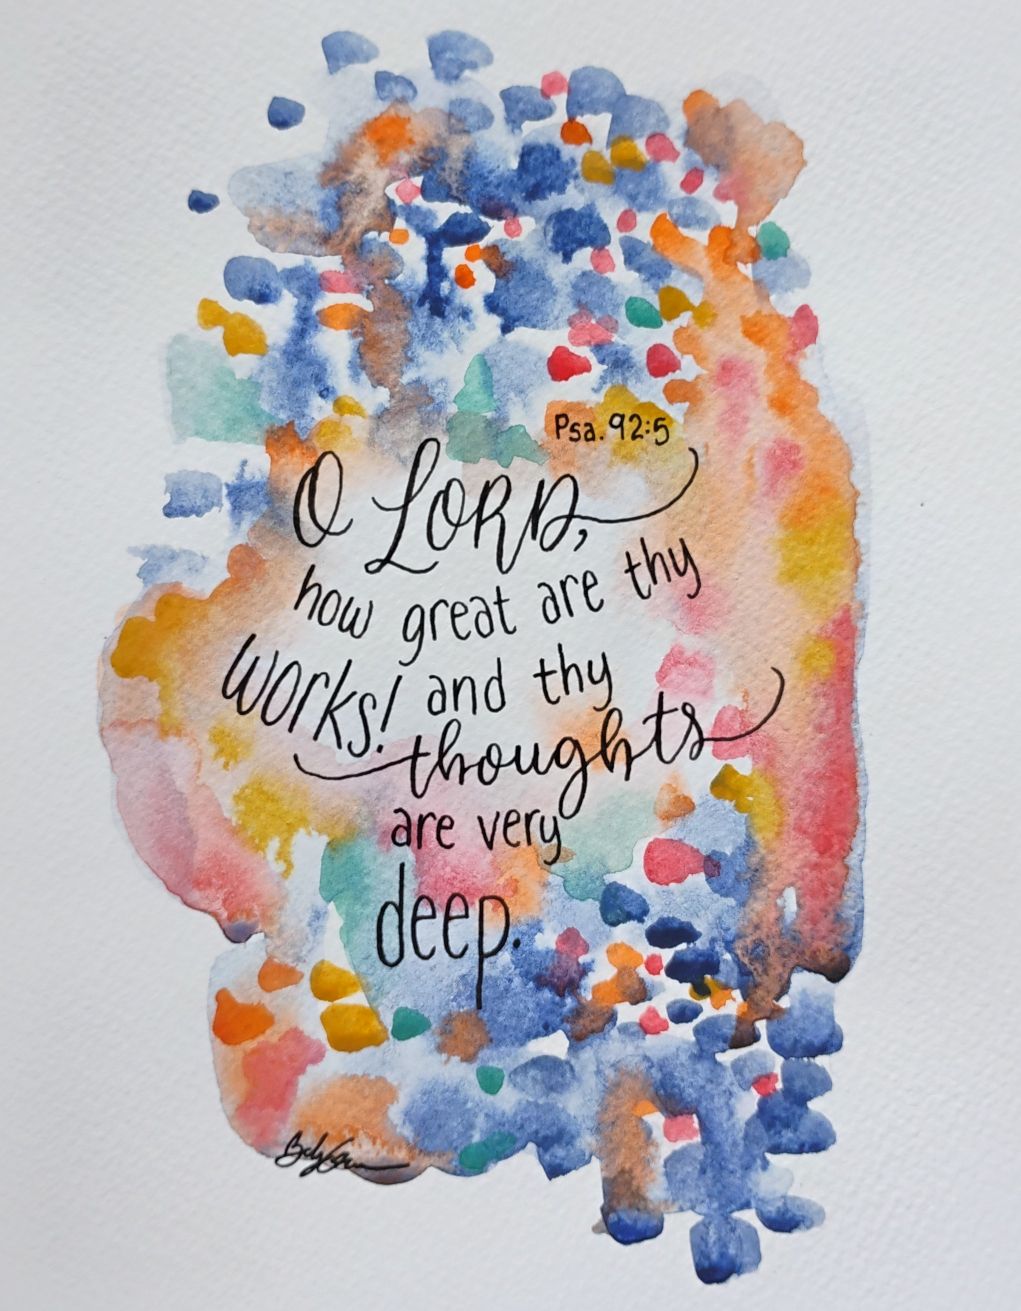 Psa. 92:5
O LORD,
how great are thy
works! and thy
thoughts
are very
deep.